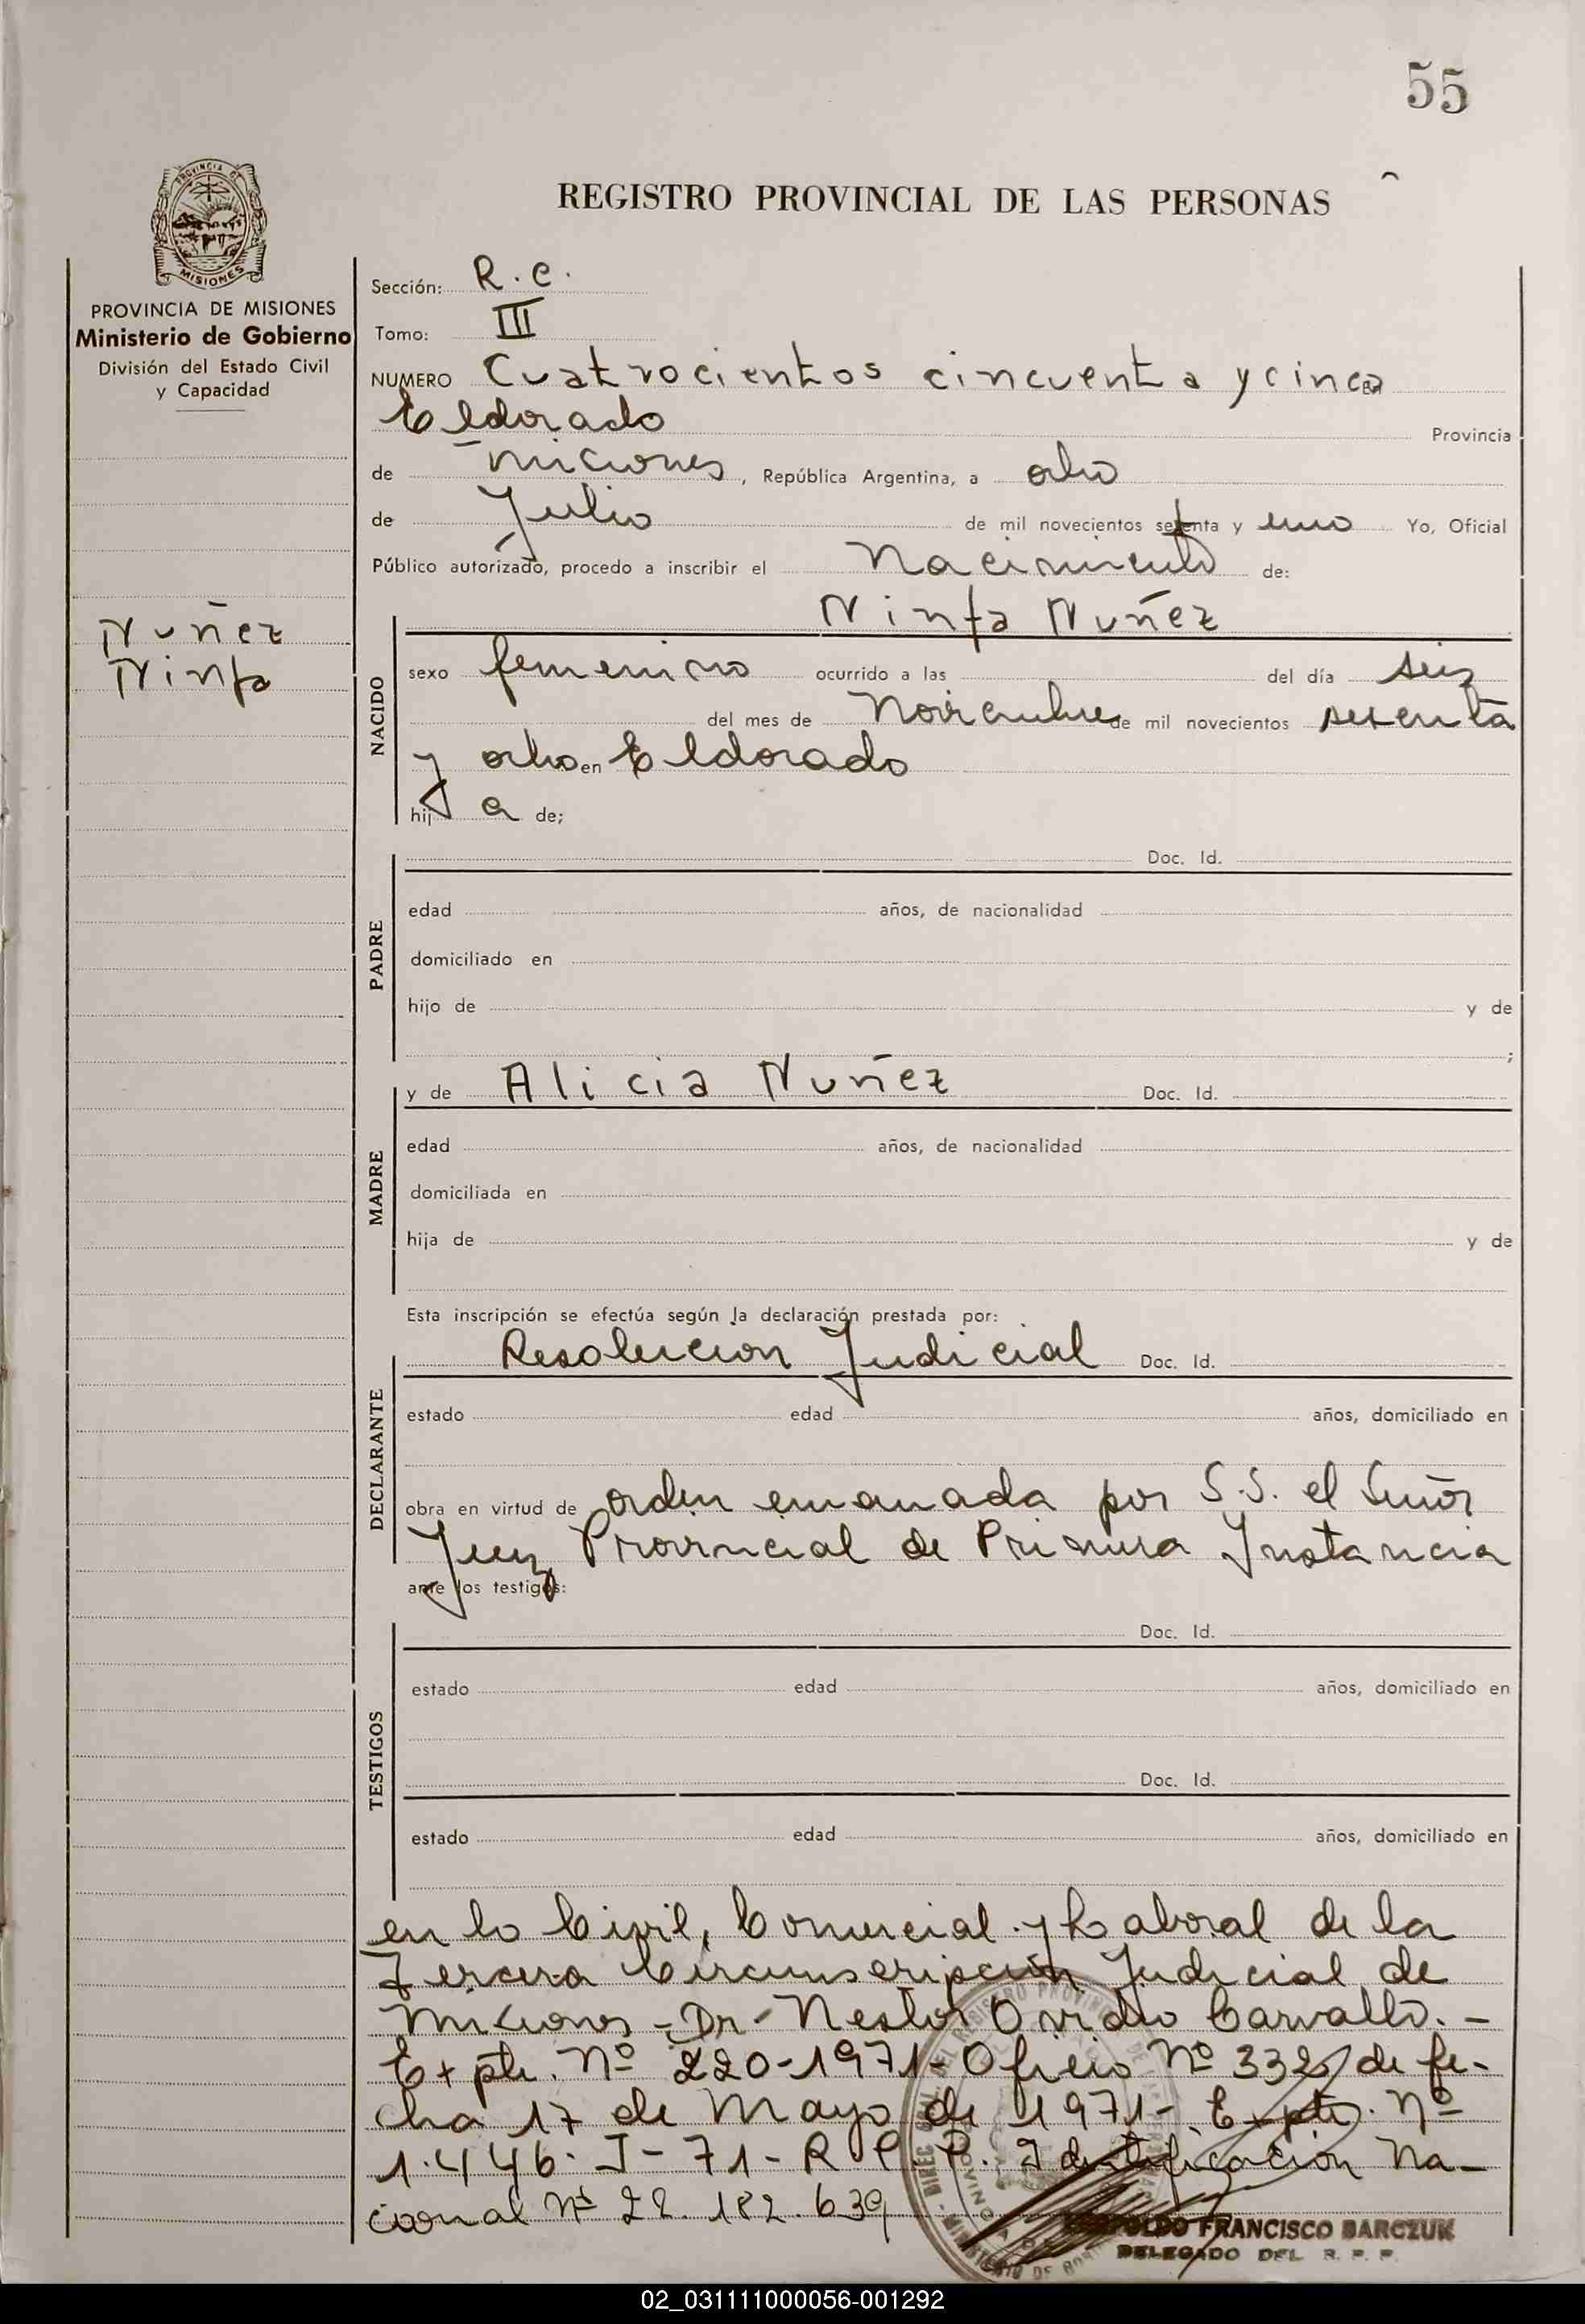 55
PROVINCIA DE
MISIONES
REGISTRO PROVINCIAL DE LAS PERSONAS
PROVINCIA DE MISIONES
Ministerio de Gobierno
División del Estado Civil
y Capacidad
Sección: R.C.
Tomo: III
NUMERO Cuatrocientos cincuenta y cinco
Eldorado Provincia
de Misiones, República Argentina, a ocho
de Julio de mil novecientos setenta y uno Yo, Oficial
Público autorizado, procedo a inscribir el Nacimiento de:
Nuñez
Ninfa
NACIDO
Ninfa Nuñez
sexo femenino ocurrido a las del día seis
del mes de Noviembre de mil novecientos sesenta
y ocho en Eldorado
hij a de;
PADRE
Doc. Id.
edad años, de nacionalidad
domiciliado en
hijo de y de
;
MADRE
y de Alicia Nuñez Doc. Id.
edad años, de nacionalidad
domiciliada en
hija de y de
Esta inscripción se efectúa según la declaración prestada por:
DECLARANTE
Resolucion Judicial Doc. Id.
estado edad años, domiciliado en
obra en virtud de orden emanada por S.S. el Señor
Juez Provincial de Primera Instancia
ante los testigos:
TESTIGOS
Doc. Id.
estado edad años, domiciliado en
Doc. Id.
estado edad años, domiciliado en
en lo Civil, Comercial y Laboral de la
Tercera Circunscripción Judicial de
Misiones - Dr. Nestor Ovidio Carvallo. -
Expte. Nº 220-1971- Oficio Nº 332 de fe-
cha 17 de Mayo de 1971- Expte. Nº
1.446. J-71- R.P.P. Identificación Na-
cional Nº 28.182.639
FRANCISCO BARCZUK
DELEGADO DEL R. P. P.
02_031111000056-001292